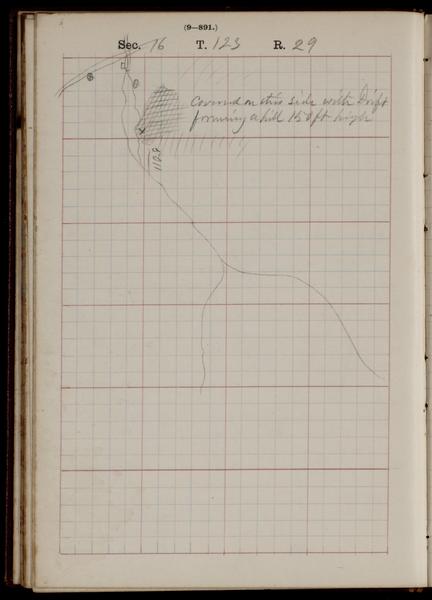 (9—891.)
Sec. 16 T. 123 R. 29
Covered on this side with Drift
forming a hill 150 ft high